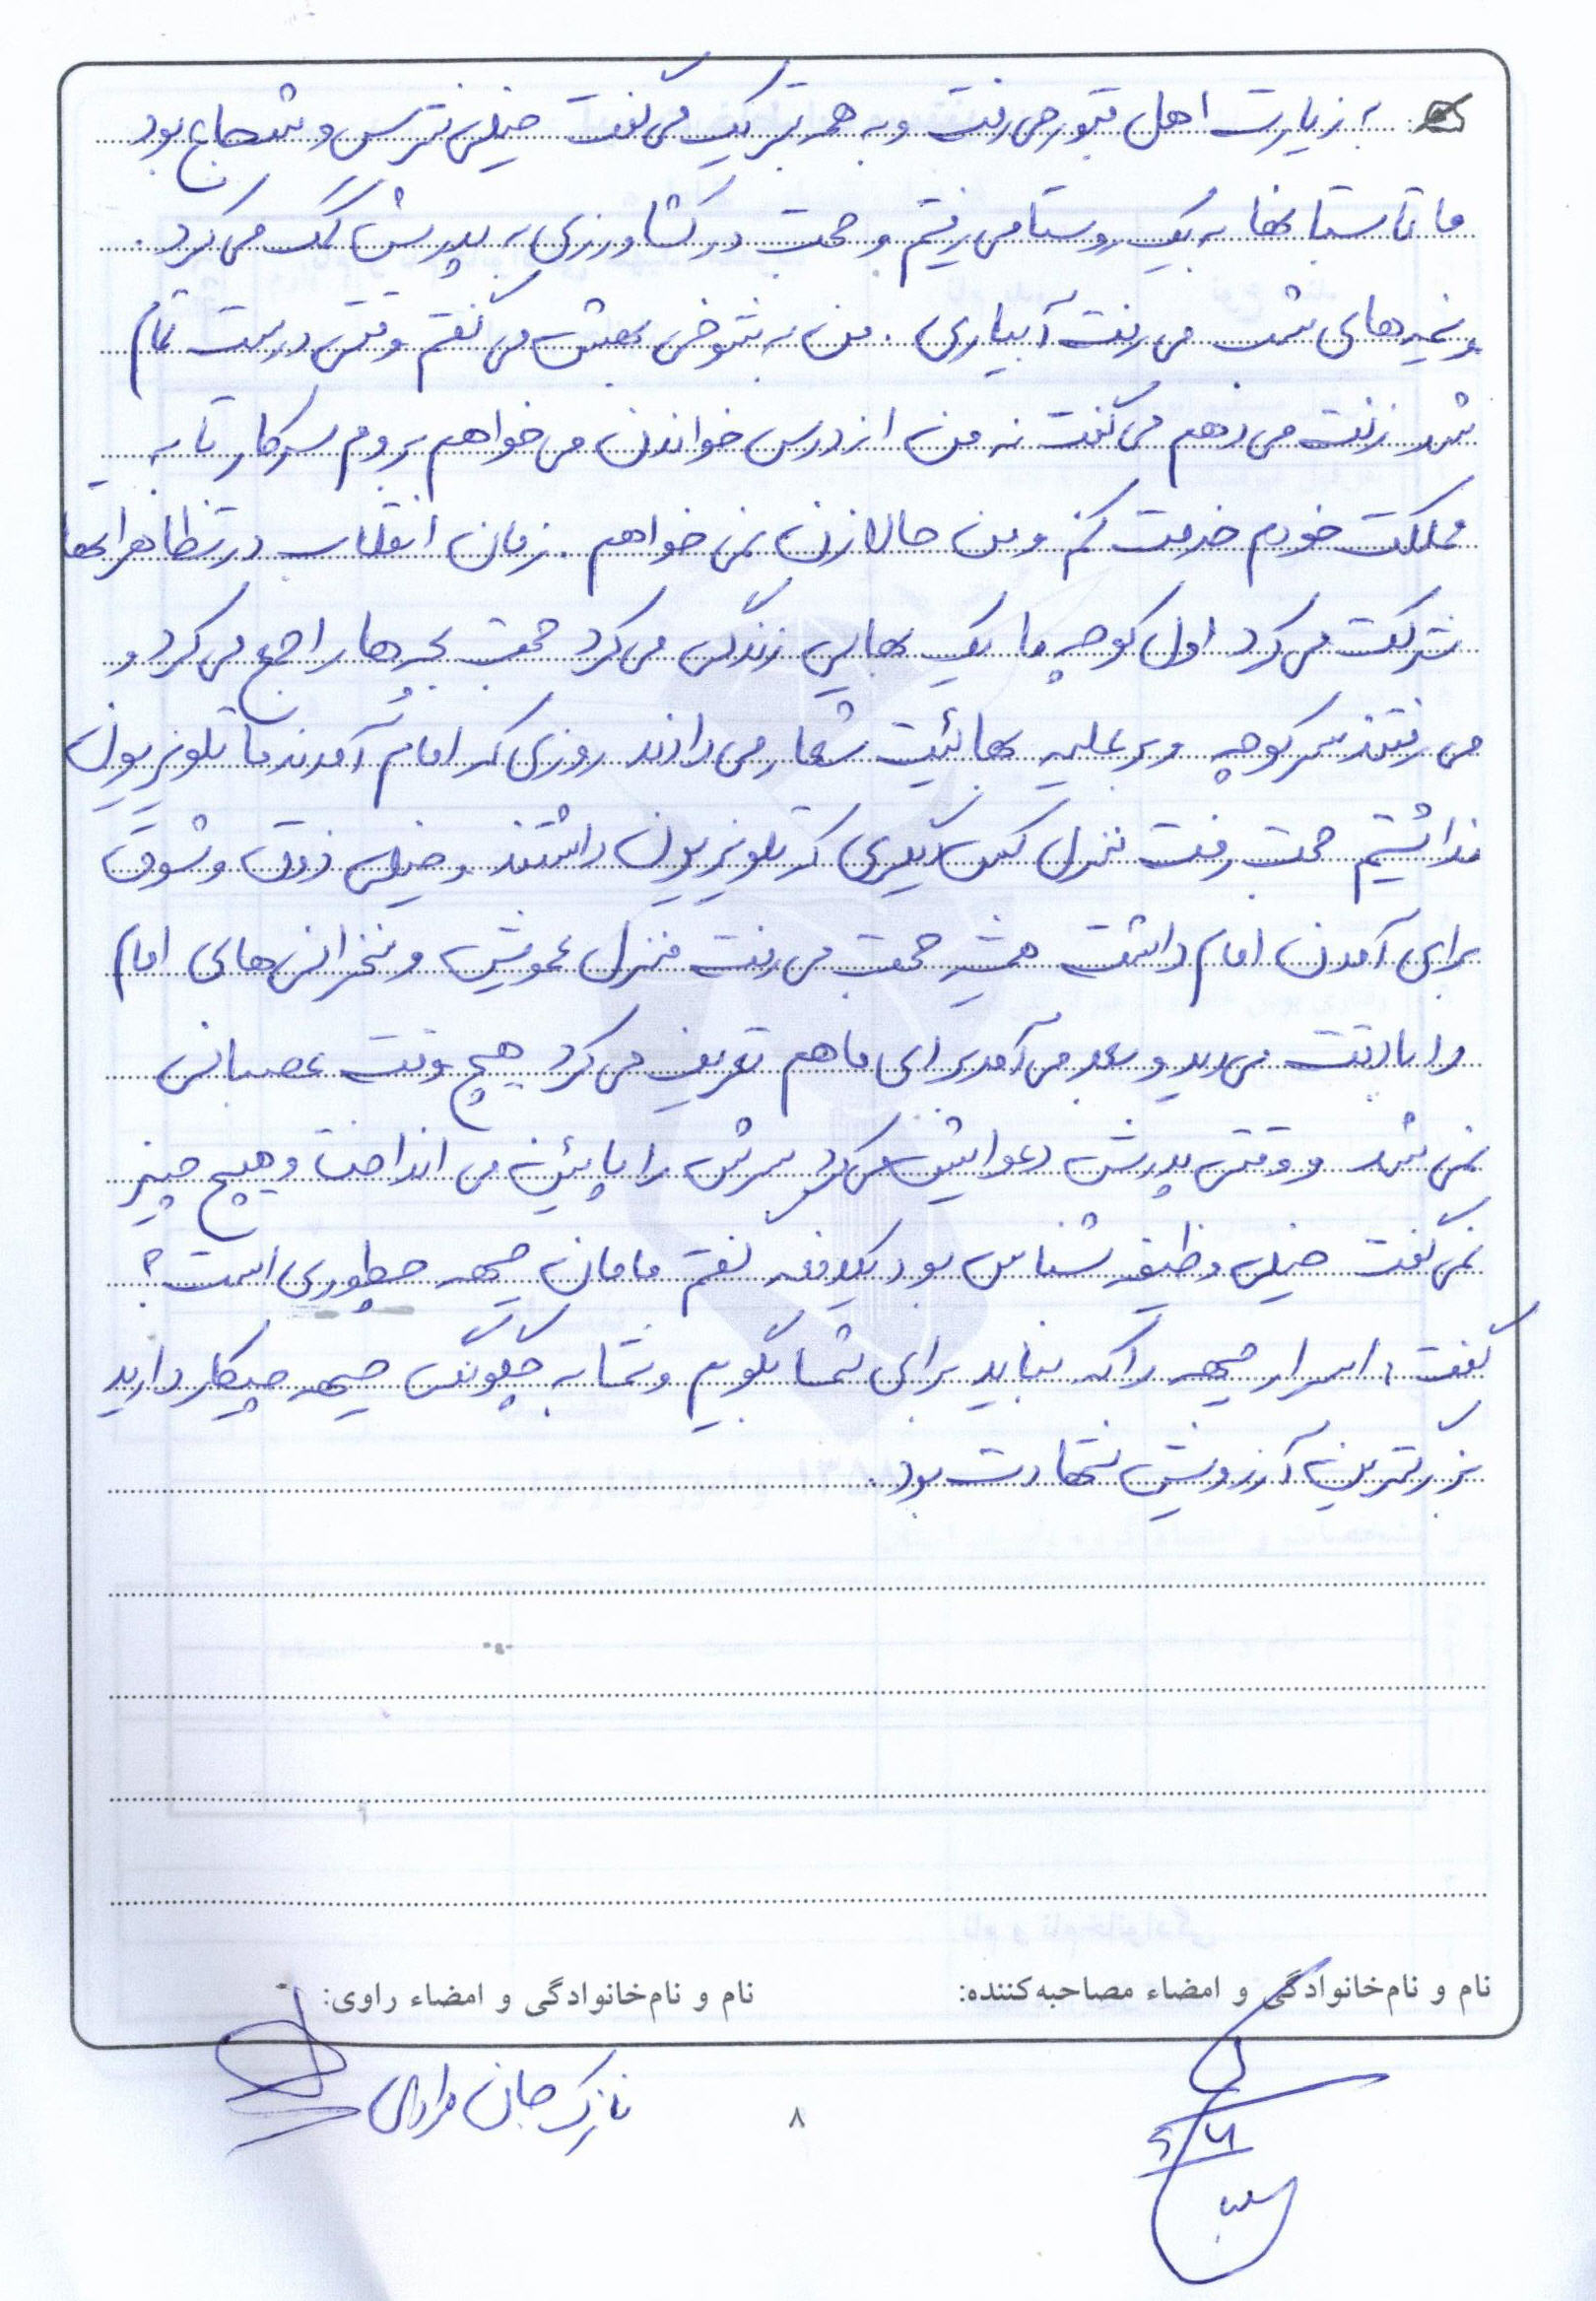 به زیارت اهل قبور می رفت و به همه تبریک می گفت خیلی نترس و شجاع بود
ما تابستانها به یک روستا می رفتیم و حجت در کشاورزی به پدرش کمک می کرد.
و نیمه های شب می رفت آبیاری . من به شوخی بهش می گفتم وقتی درست تمام
شد زنت می دهم می گفت نه من از درس خواندن می خواهم بروم سر کار تا به
مملکت خودم خدمت کنم و من حالا زن نمی خواهم . زمان انقلاب در تظاهراتها
شرکت می کرد اول کوچه ما یک بهایی زندگی می کرد حجت بچه ها را جمع می کرد و
می رفتند سر کوچه و بر علیه بهائیت شعار می دادند روزی که امام آمدند ما تلویزیون
نداشتیم حجت رفت منزل کس دیگری که تلویزیون داشتند و خیلی ذوق و شوق
برای آمدن امام داشت همیشه حجت می رفت منزل عمویش و سخنرانی های امام
را با دقت می دید و بعد می آمد برای ما هم تعریف می کرد هیچ وقت عصبانی
نمی شد و وقتی پدرش دعوایش می کرد سرش را پایین می انداخت و هیچ چیز
نمی گفت خیلی وظیفه شناس بود یکدفعه گفتم مامان جبهه چطوری است؟
گفت : اسرار جبهه را که نباید برای شما بگویم و شما به چگونگی جبهه چیکار دارید
بزرگترین آرزویش شهادت بود.
نام و نام‌خانوادگی و امضاء مصاحبه‌کننده:
نام و نام‌خانوادگی و امضاء راوی:
نازک جان مرادی
۸